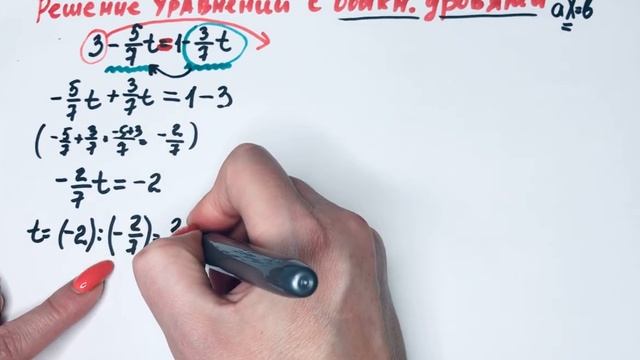 Решение уравнений с обыкн. дробями ax=b
3 - 5/7 t = 1 - 3/7 t
- 5/7 t + 3/7 t = 1 - 3
(- 5/7 + 3/7 = -5+3/7 = - 2/7)
- 2/7 t = -2
t = (-2) : (- 2/7) = 2